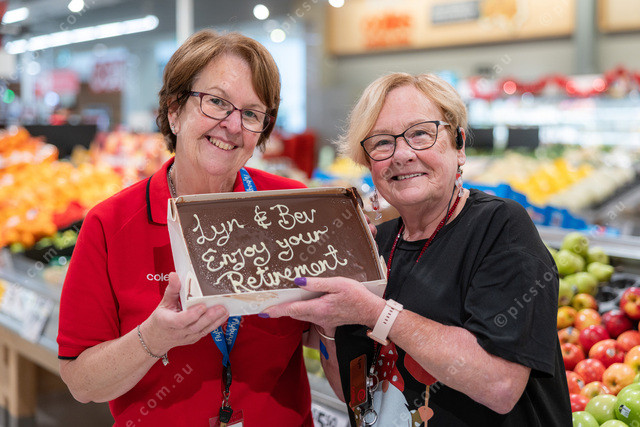 Lyn & Bev
Enjoy your
Retirement
cole
© picstore.com.au